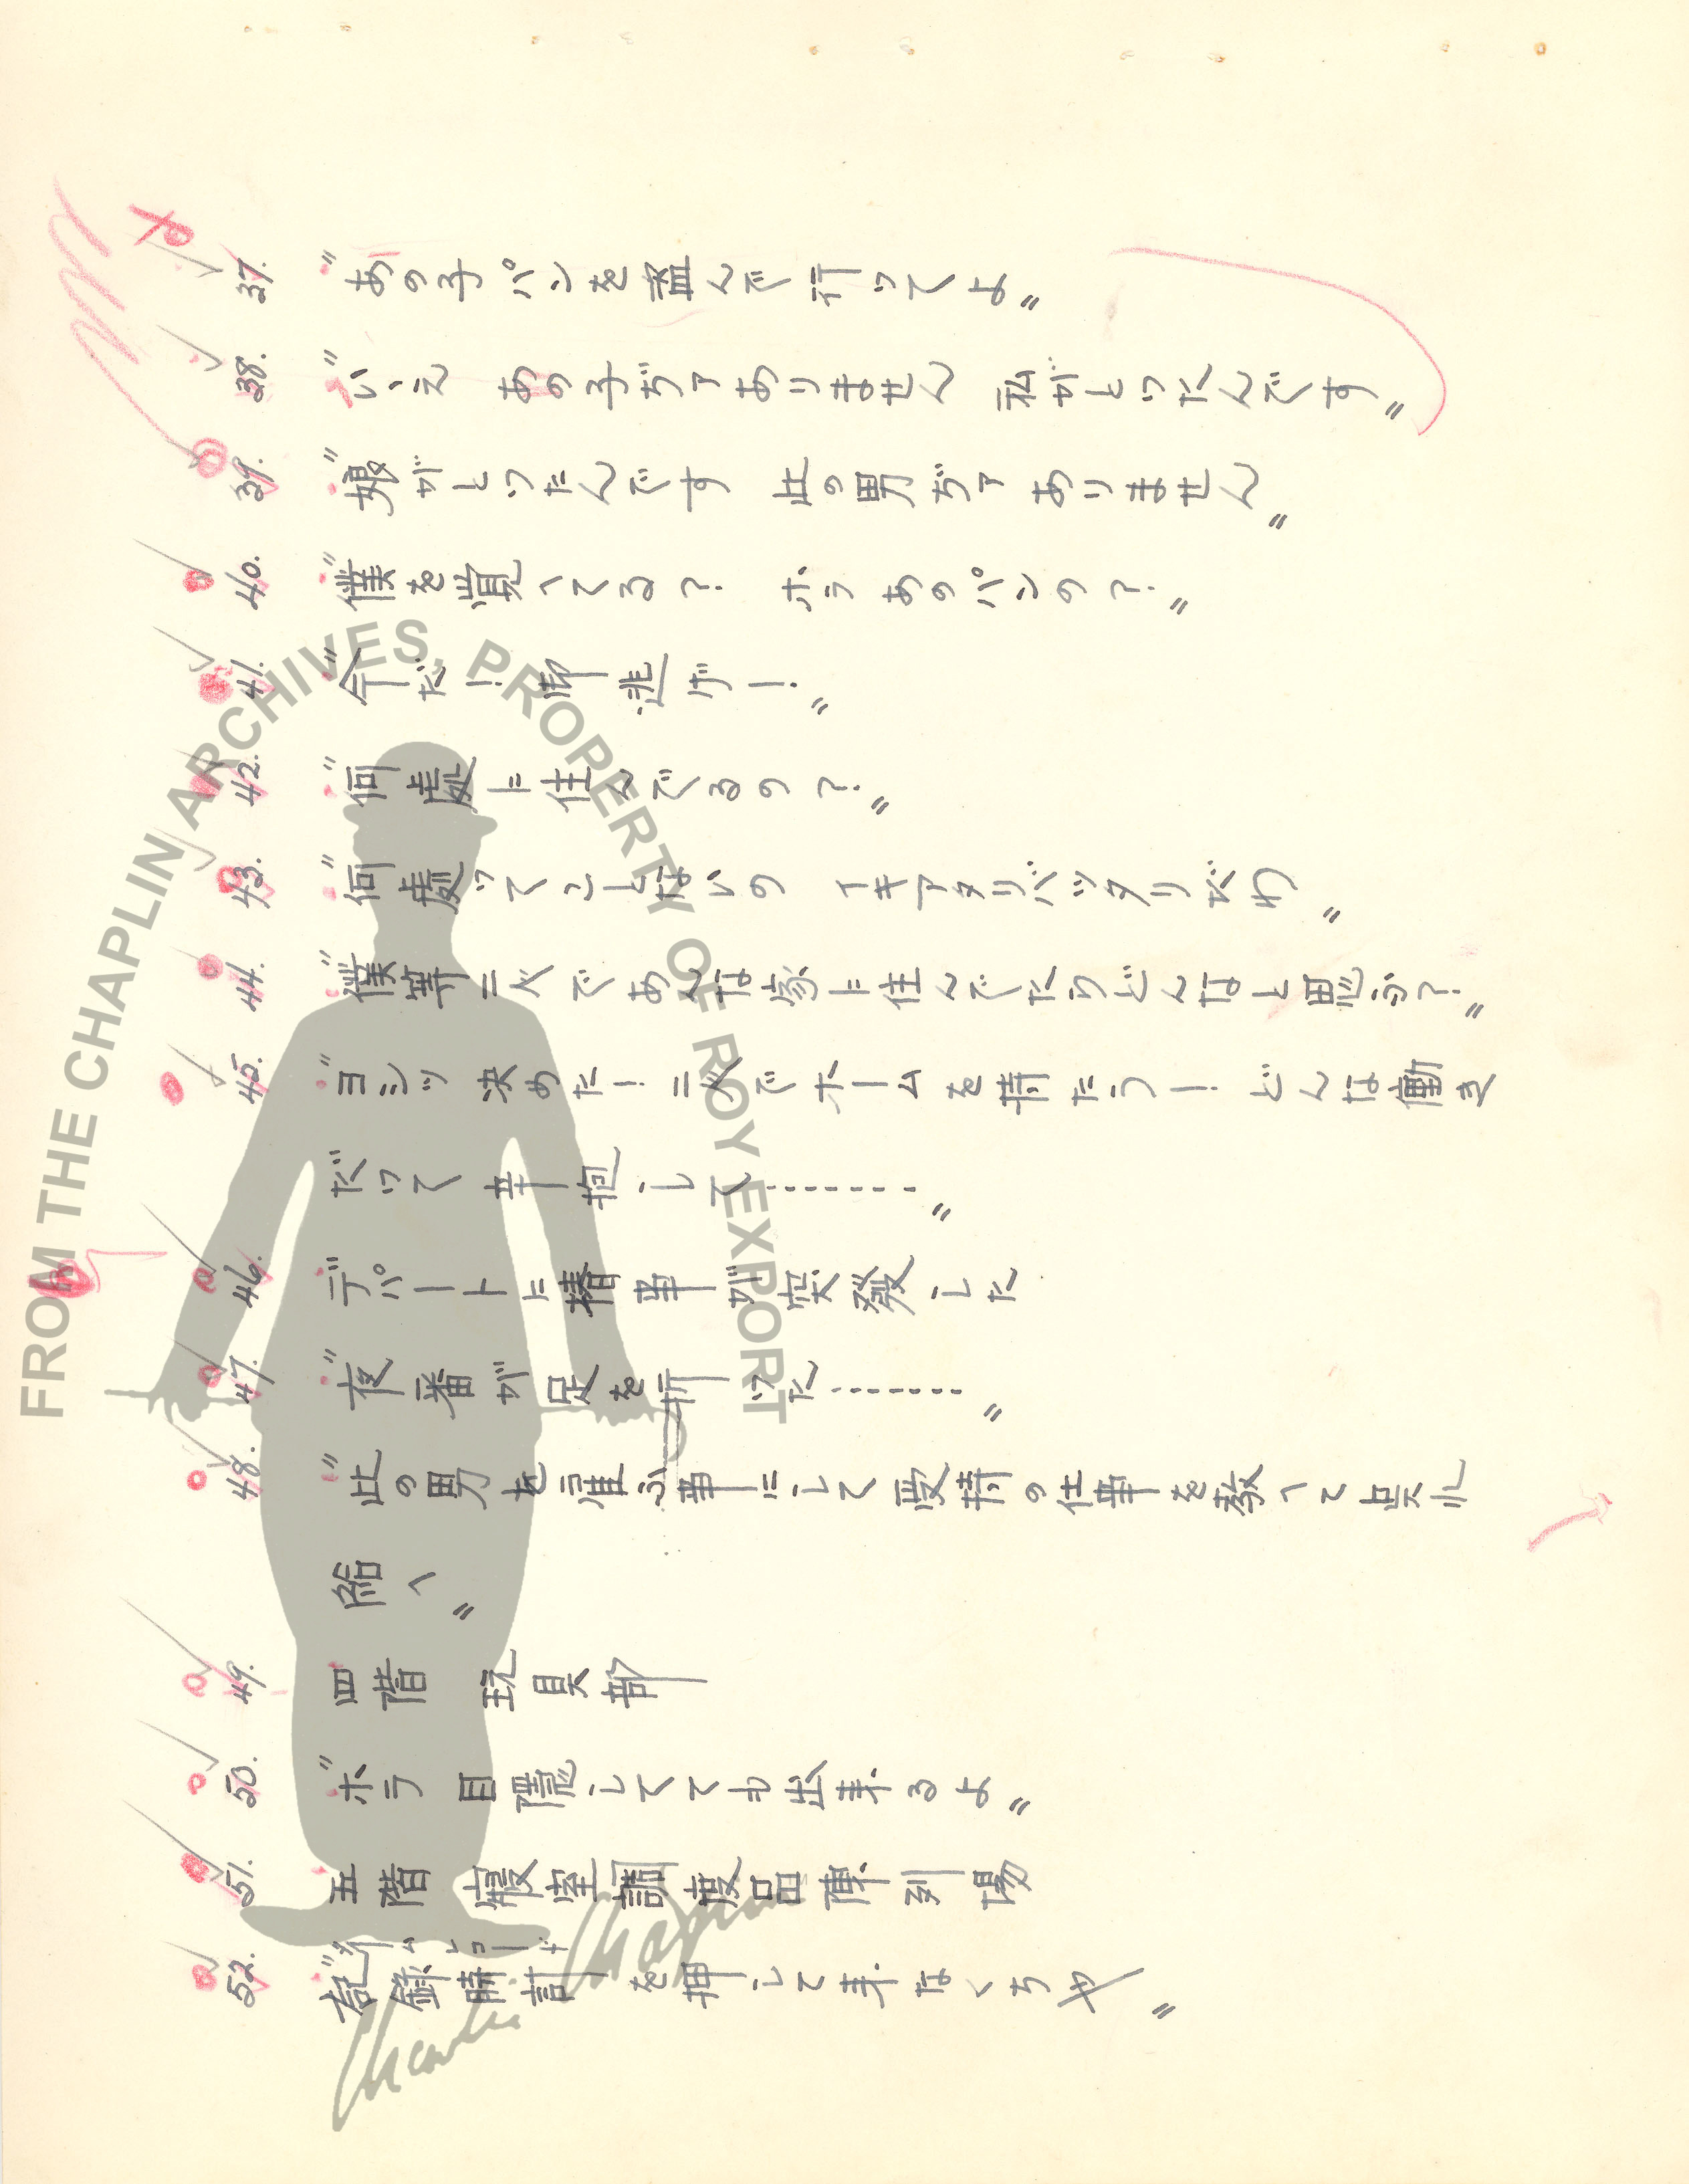 37. "あの子パンを盗んで行ってよ"
38. "いゝえ あの子ぢァありません 私がとったんです"
39. "娘がとったんです 此の男ぢァありません"
40. "僕を覚へてる？ ホラ あのパンの？"
41. "今だ！ お逃げー！"
42. "何處に住んでるの？"
43. "何處ってことないの イキアタリバッタリだわ"
44. "僕等二人であんな家に住んでたらどんなと思ふ？"
45. "ヨシッ 決めたー！ 二人でホームを持たうー！ どんな働き
だって辛抱して………"
46. デパートに椿事が突発した
47. "夜番が足を折った………"
48. "此の男を雇ふ事にして受持の仕事を教へて呉れ
給へ"
49. 四階 玩具部
50. "ホラ 目隠してても出来るよ"
51. 五階 寝室調度品陳列場
52. "記録時計を押して来なくちや"
タイムレコード
FROM THE CHAPLIN ARCHIVES, PROPERTY OF ROY EXPORT
Charlie Chaplin